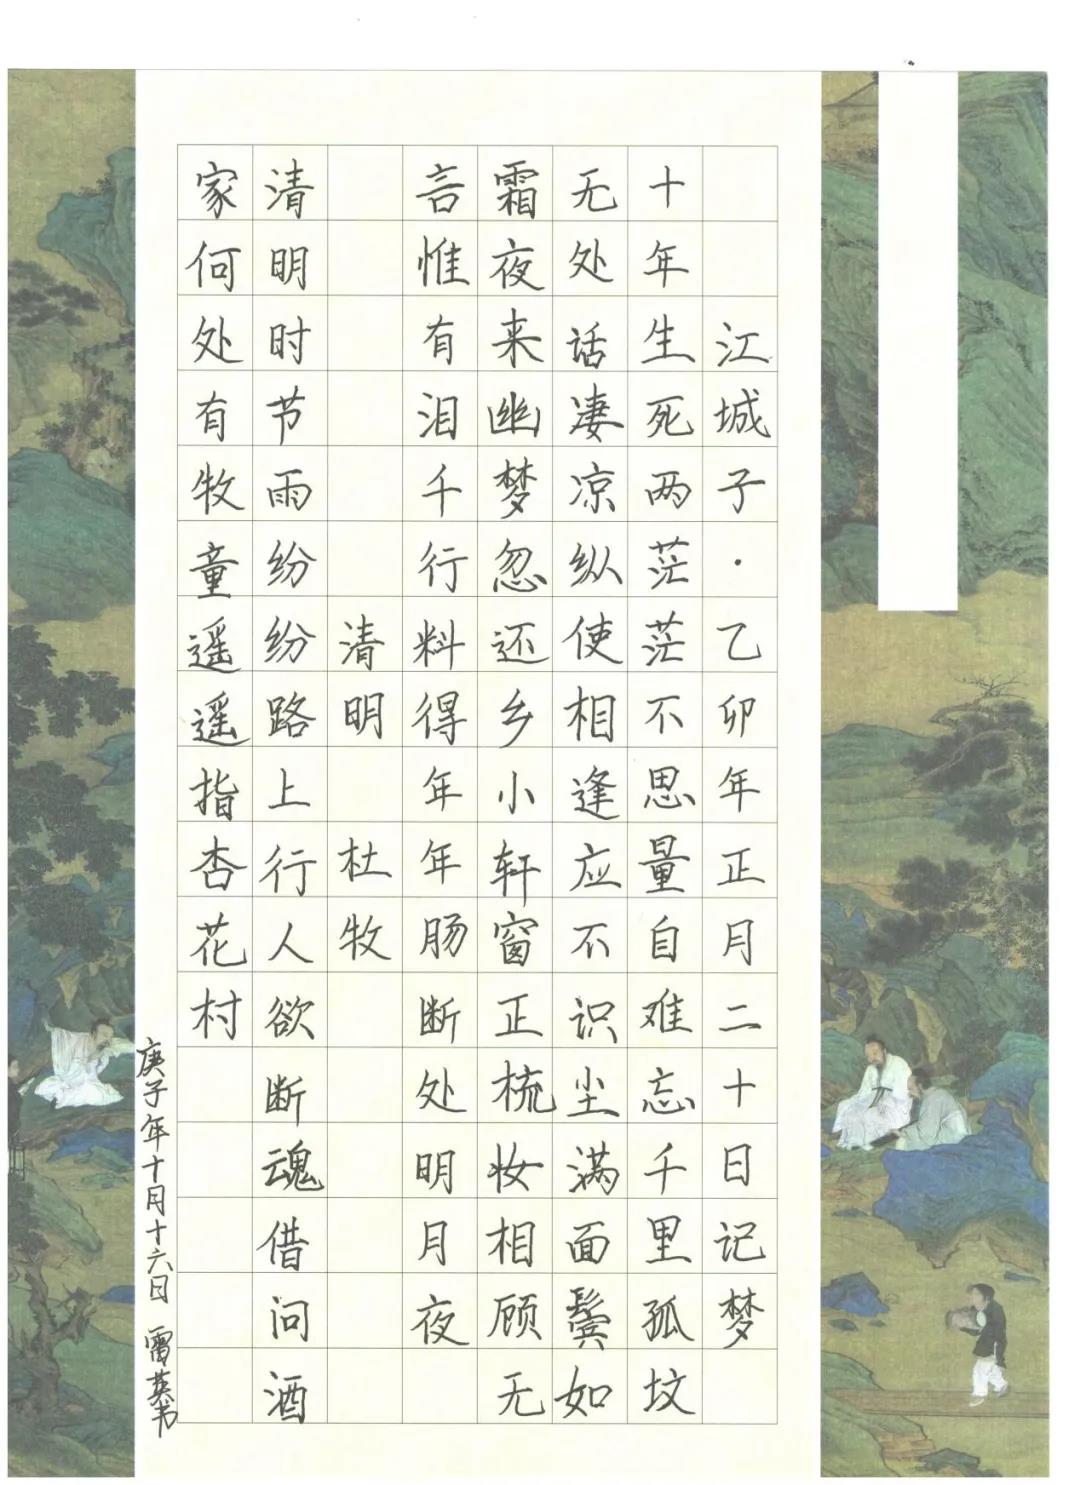 江城子·乙卯年正月二十日记梦
十年生死两茫茫不思量自难忘千里孤坟
无处话凄凉纵使相逢应不识尘满面鬓如
霜夜来幽梦忽还乡小轩窗正梳妆相顾无
言惟有泪千行料得年年肠断处明月夜
清明 杜牧
清明时节雨纷纷路上行人欲断魂借问酒
家何处有牧童遥遥指杏花村
庚子年十月十六日 雷英书